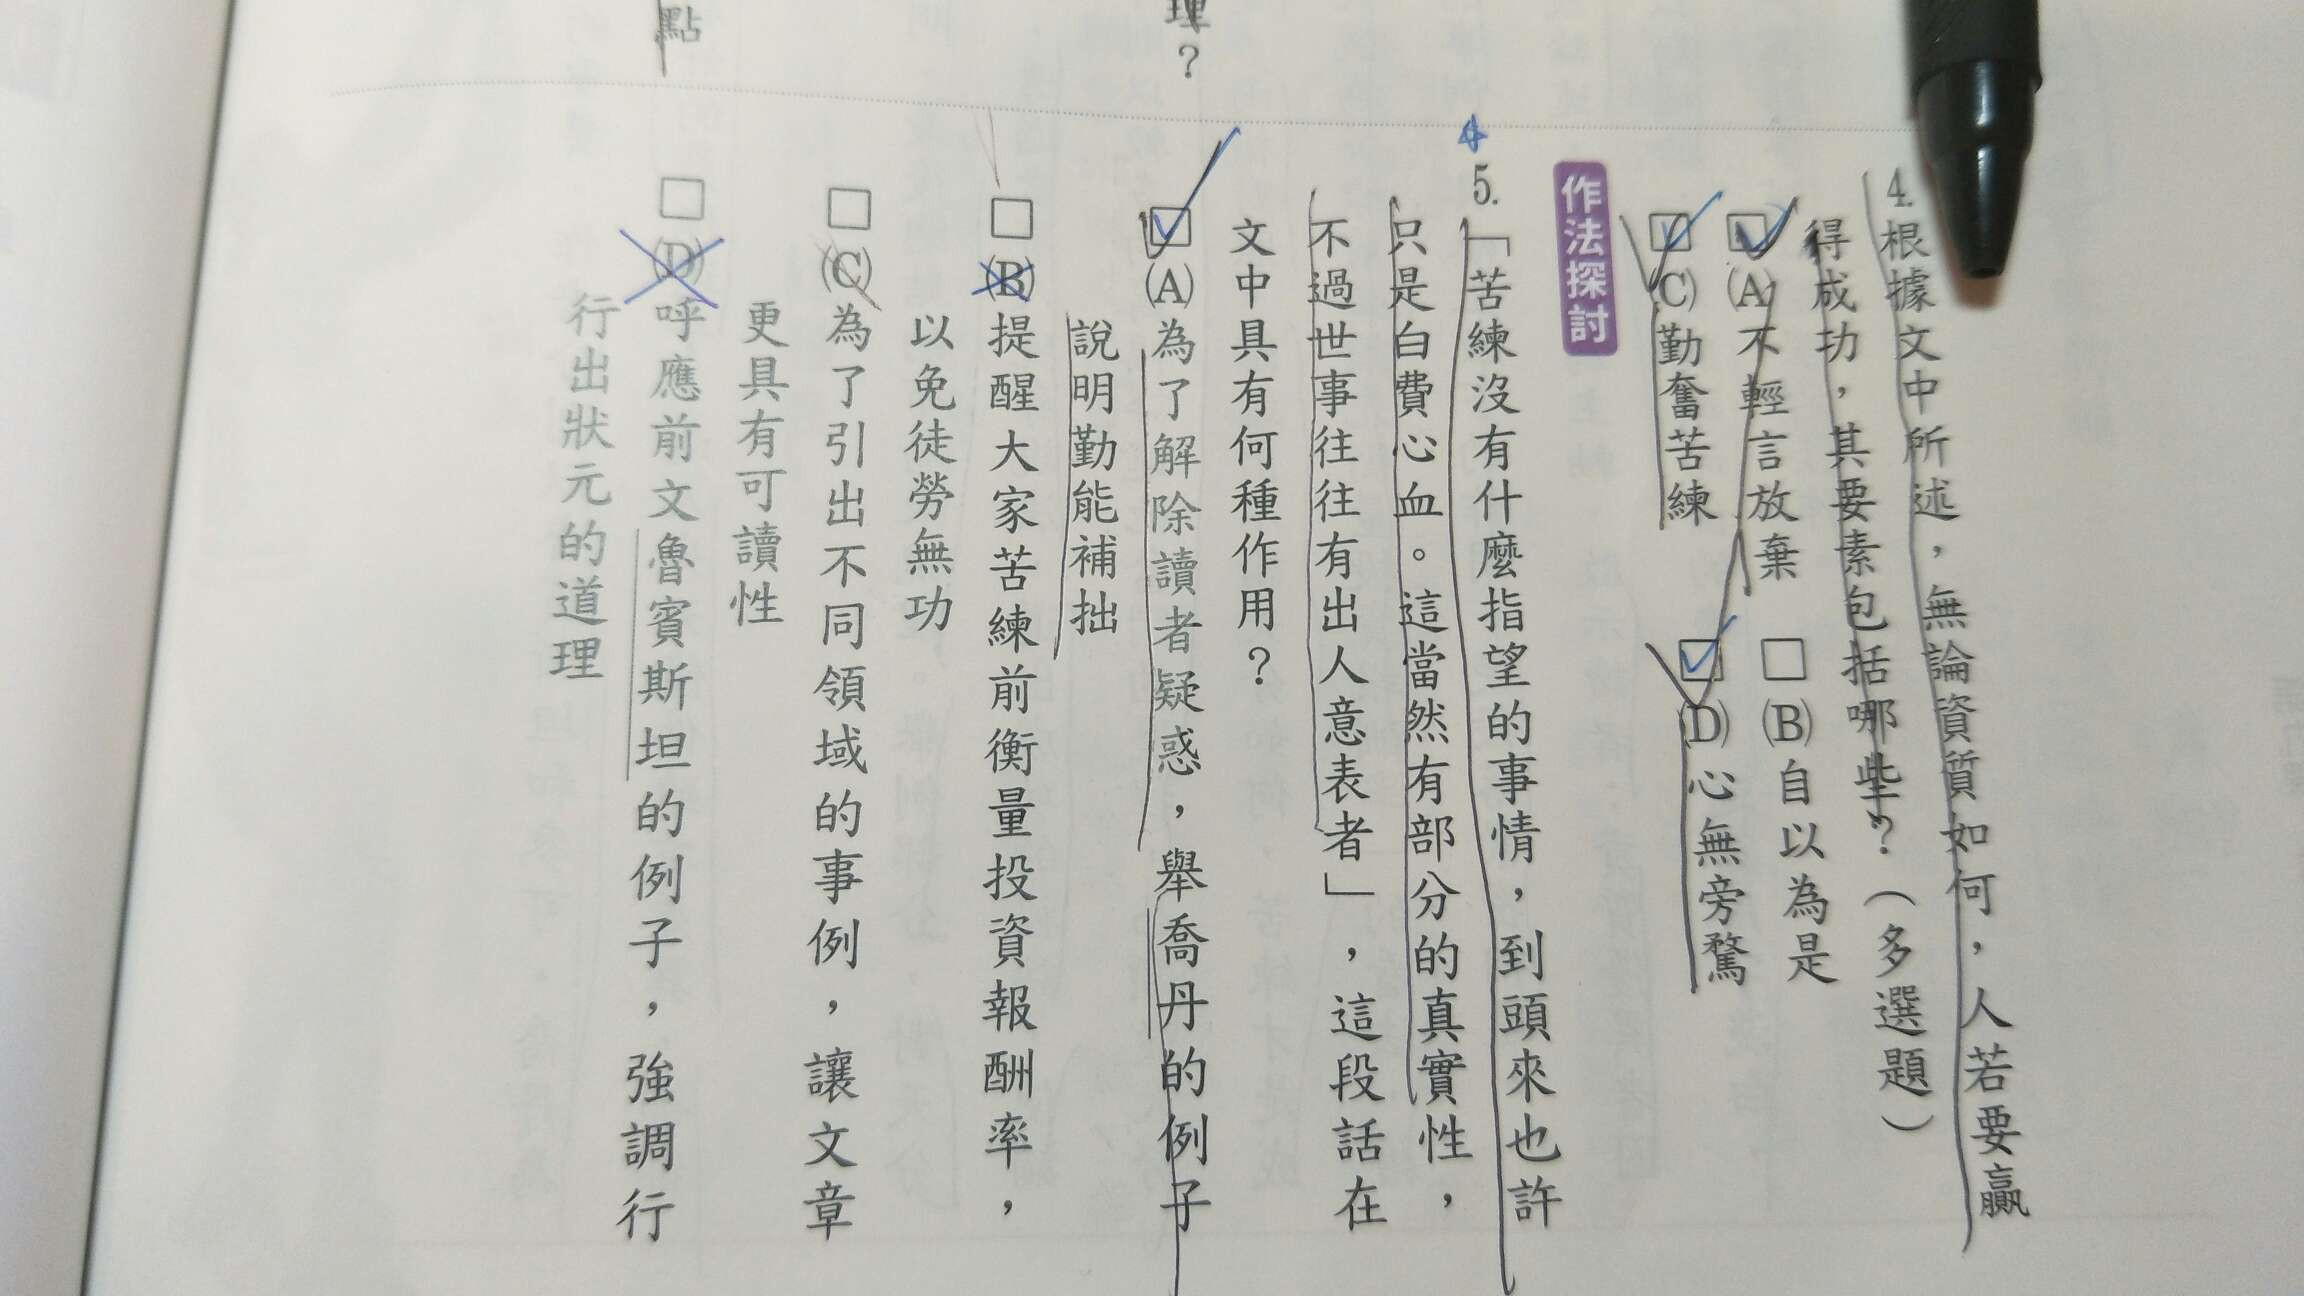 理？
點
4.根據文中所述，無論資質如何，人若要贏
得成功，其要素包括哪些？（多選題）
(A)不輕言放棄 □(B)自以為是
(C)勤奮苦練 (D)心無旁騖
作法探討
5.「苦練沒有什麼指望的事情，到頭來也許
只是白費心血。這當然有部分的真實性，
不過世事往往有出人意表者」，這段話在
文中具有何種作用？
(A)為了解除讀者疑惑，舉喬丹的例子
說明勤能補拙
□(B)提醒大家苦練前衡量投資報酬率，
以免徒勞無功
□(C)為了引出不同領域的事例，讓文章
更具有可讀性
□(D)呼應前文魯賓斯坦的例子，強調行
行出狀元的道理